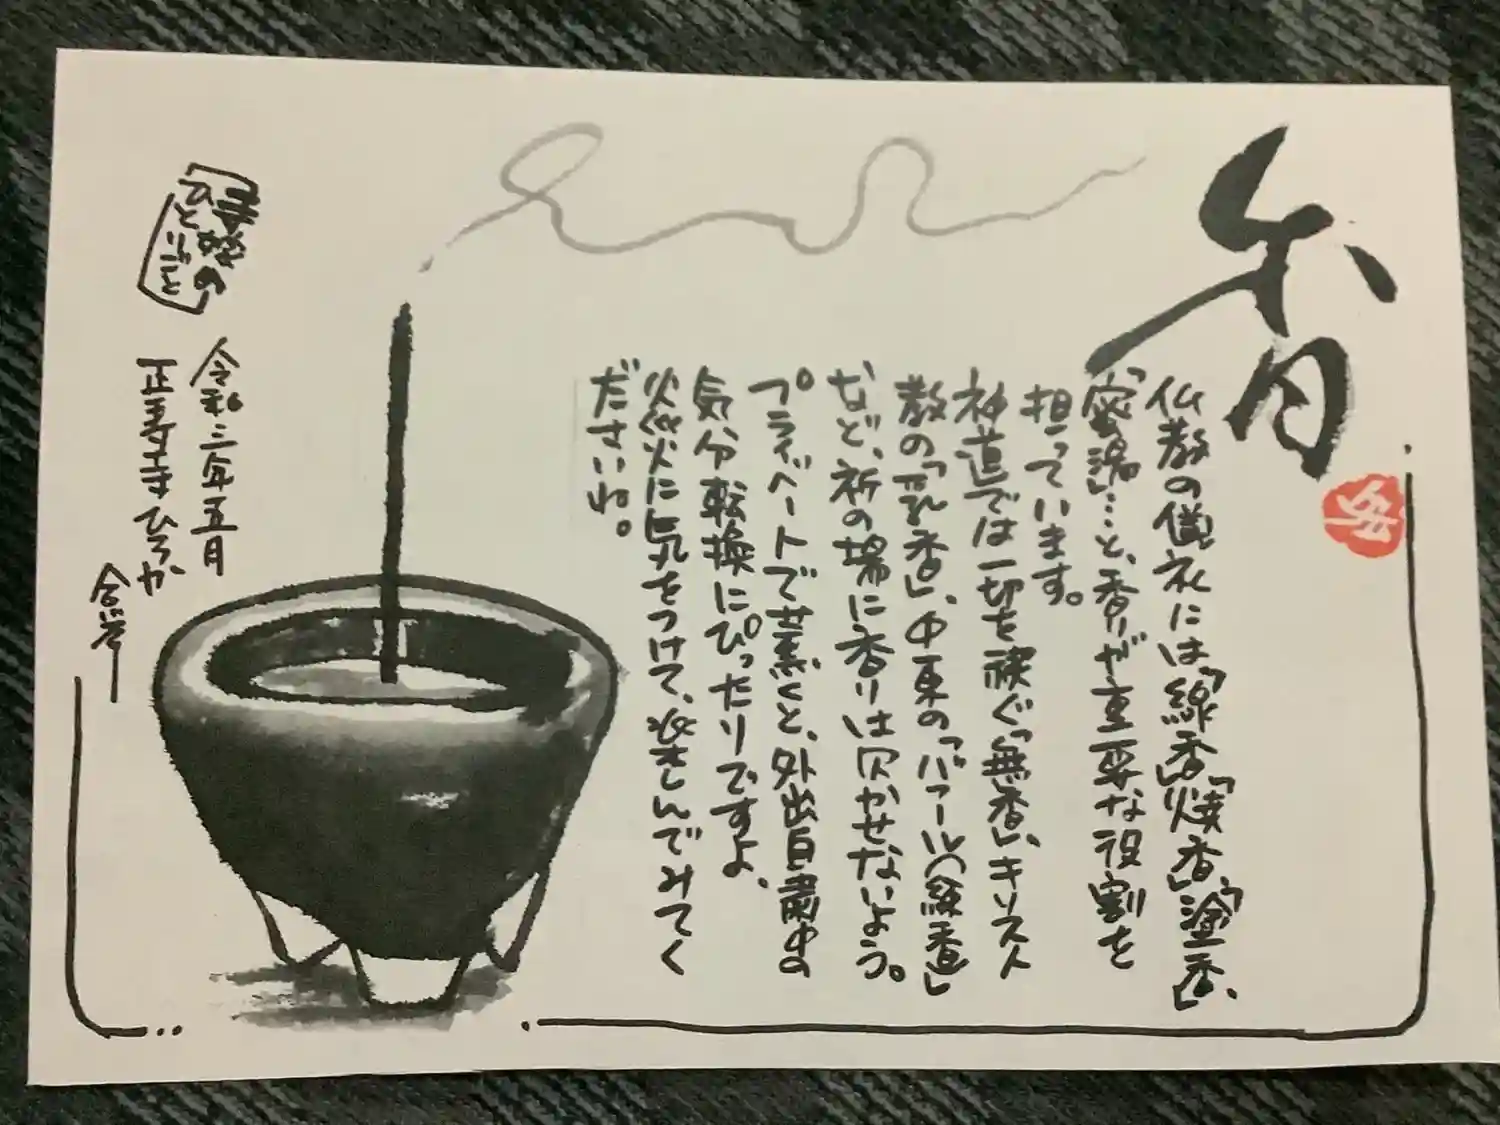 香
仏教の儀礼には「線香」「焼香」、「塗香」、
「密湯」…と、香りが重要な役割を
担っています。
神道では一切を禊ぐ「無香」、キリスト
教の「乳香」、中東の「バァール(練香)」
など、祈の場に香りは欠かせないよう。
プライベートで薫くと、外出自粛中の
気分転換にぴったりですよ、
火災に気をつけて、楽しんでみてく
ださいね。
の
ひとりごと
令和三年五月
正寿寺ひろか
合掌